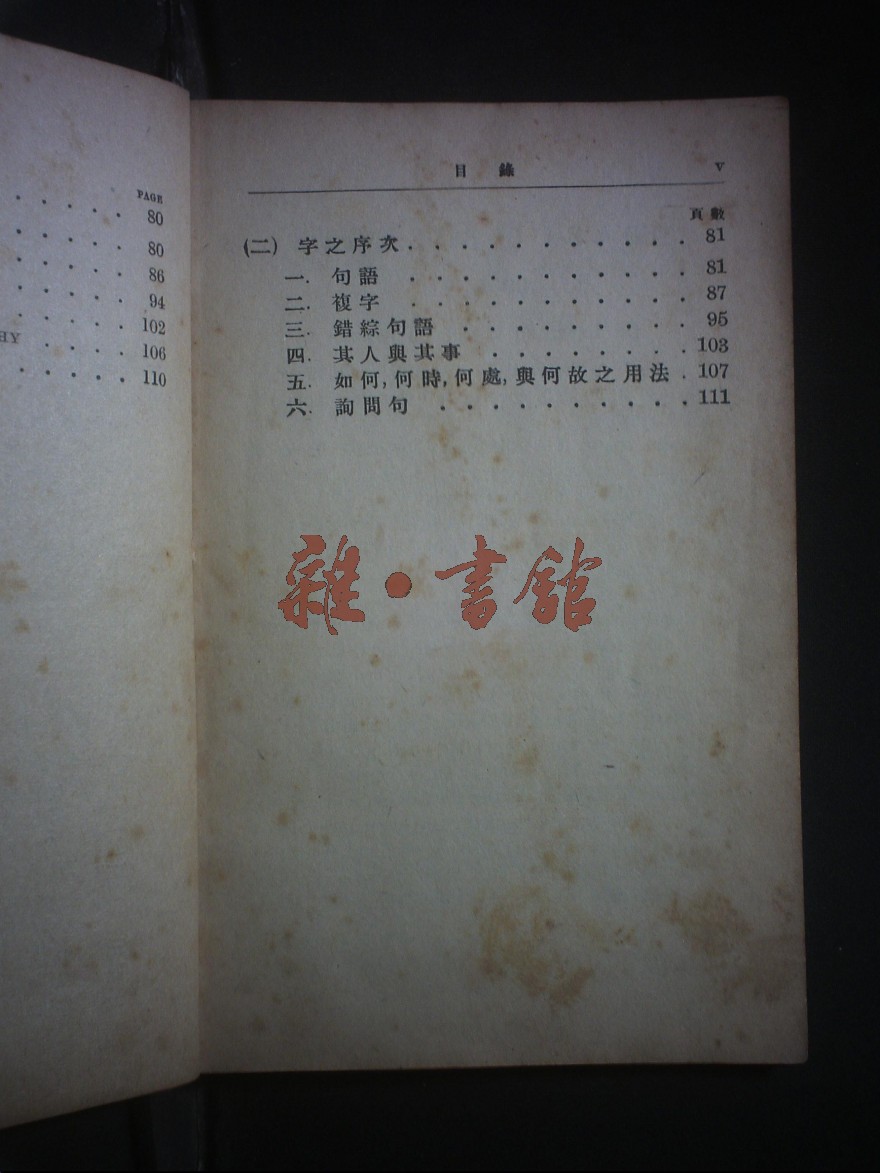 PAGE
80
80
86
94
102
106
110
目錄 v
頁數
(二) 字之序次 . . . . . . . . . . . 81
一. 句語 . . . . . . . . . . . 81
二. 複字 . . . . . . . . . . . 87
三. 錯綜句語 . . . . . . . . . 95
四. 其人與其事 . . . . . . . . 103
五. 如何,何時,何處,與何故之用法 . 107
六. 詢問句 . . . . . . . . . . 111
雜·書館